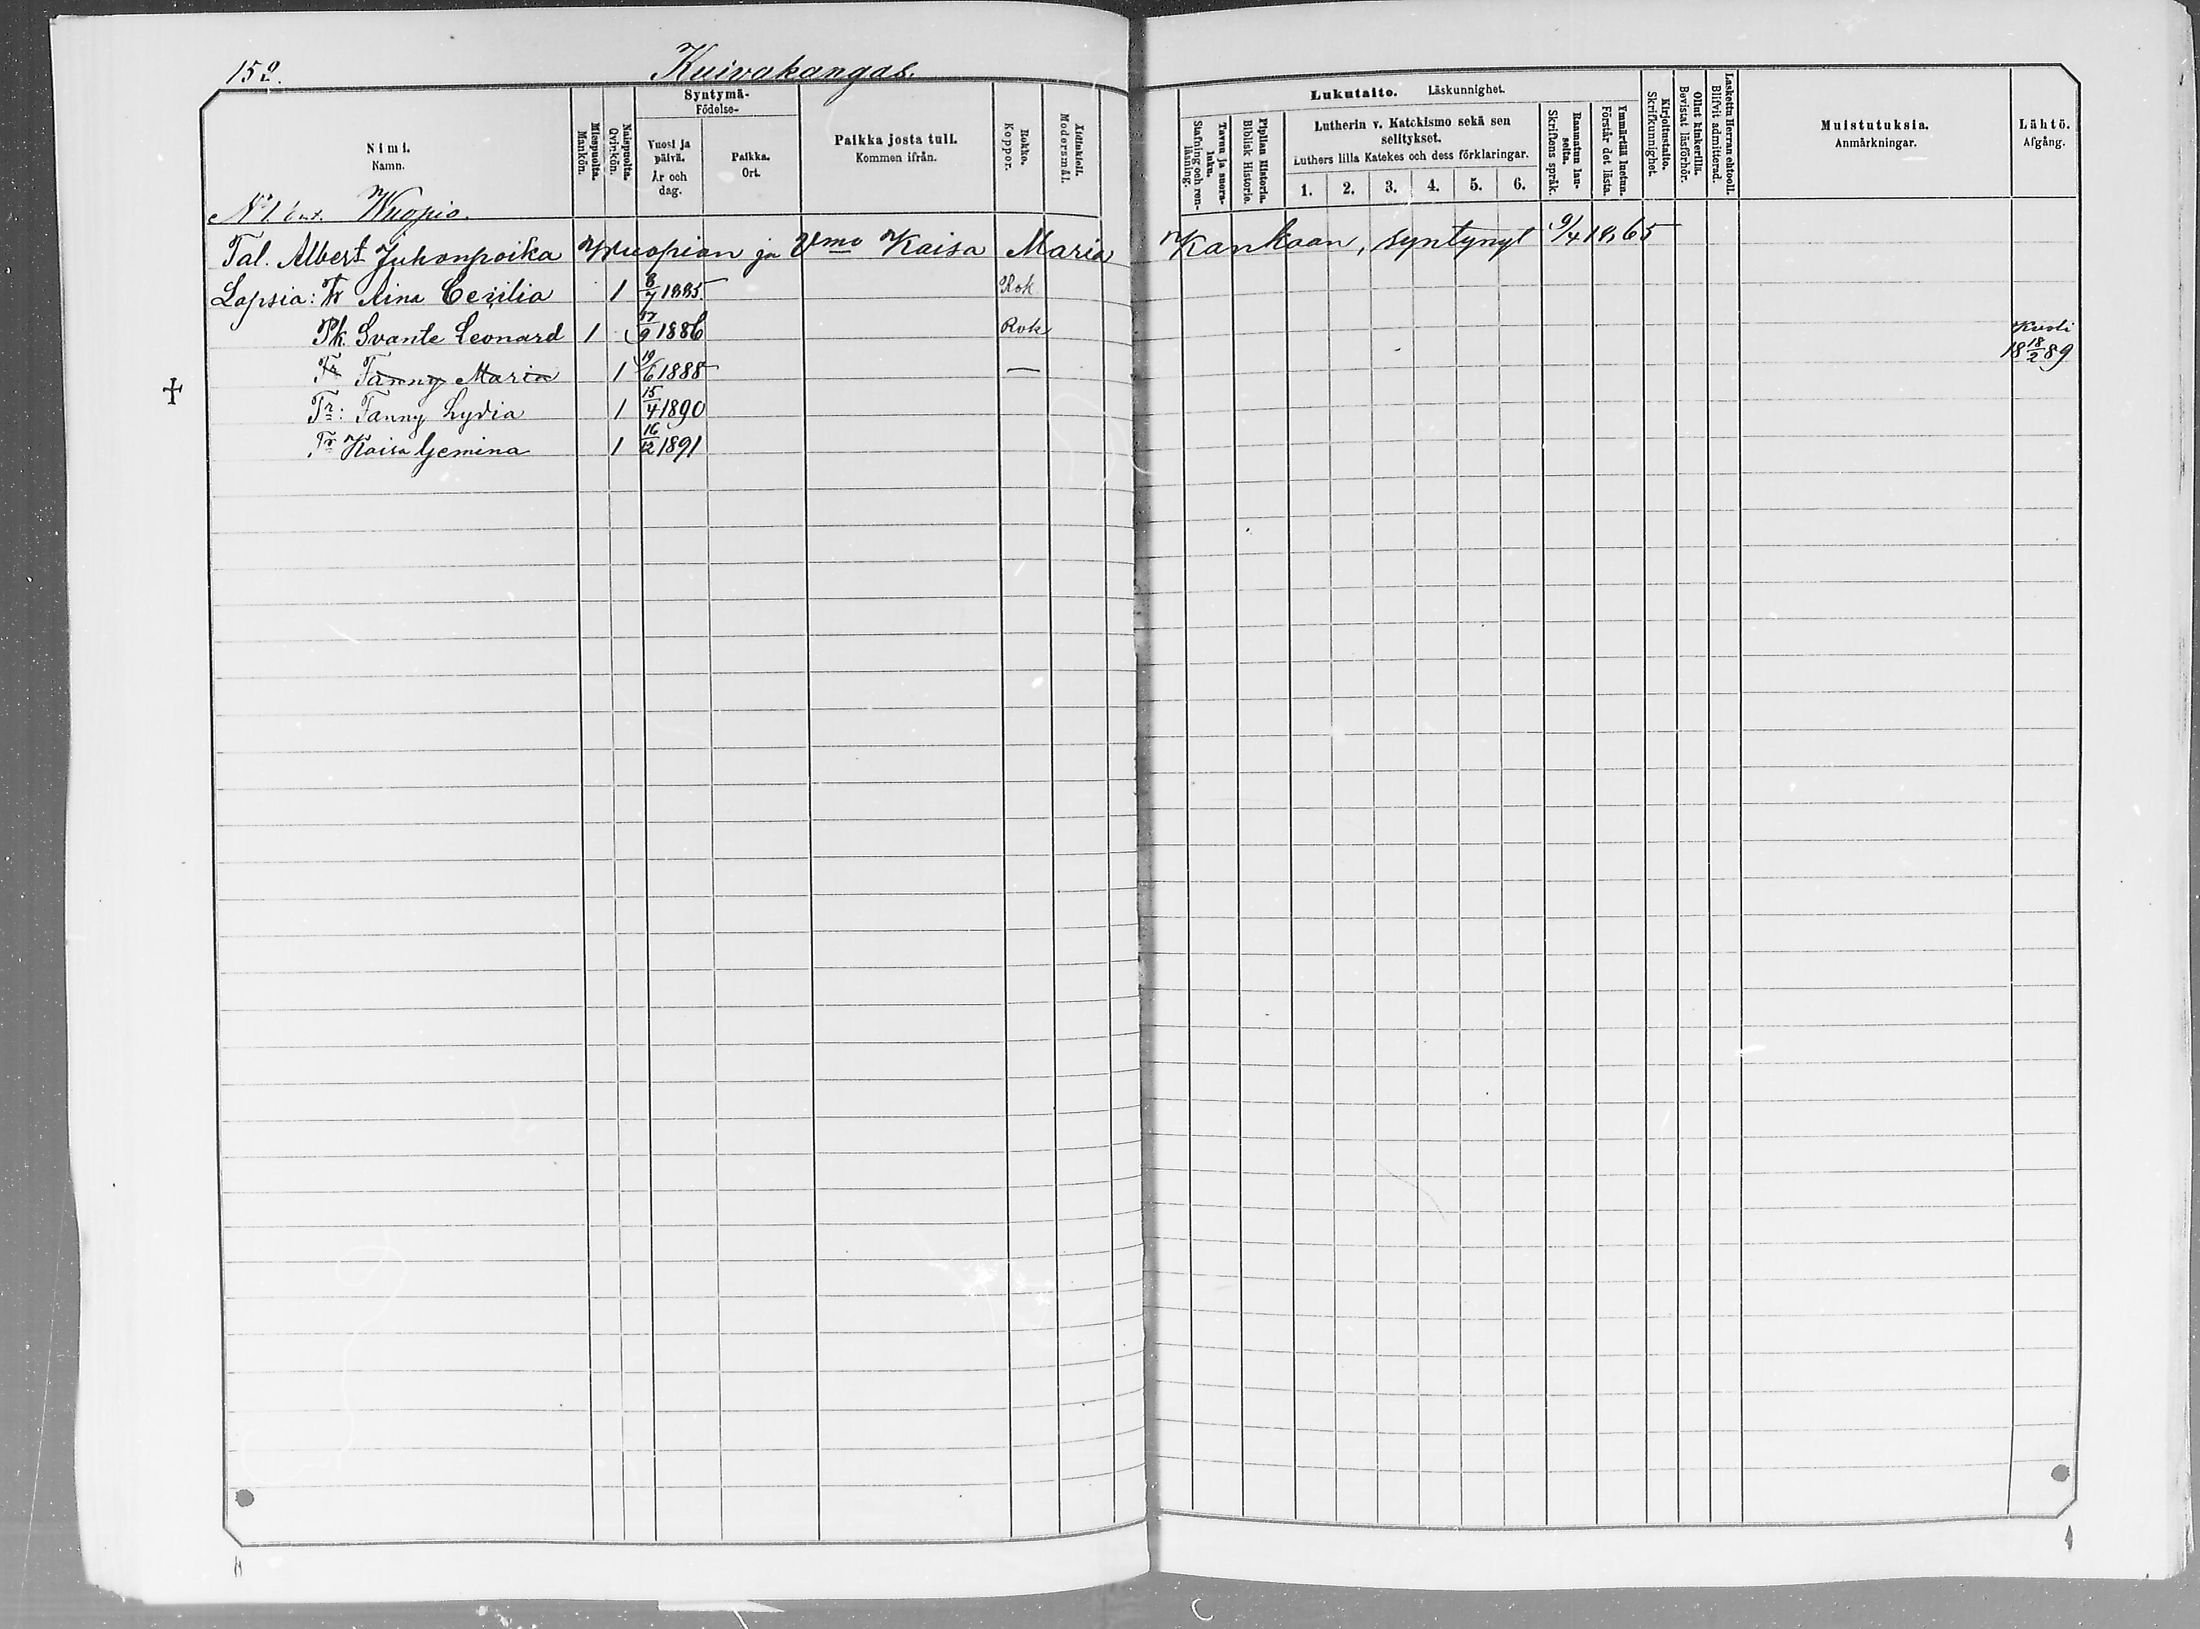 152.
Kuivakangas.
Nimi.
Namn.
Miespuolta.
Mankön.
Naispuolta.
Qvinkön.
Syntymä-
Födelse-
Vuosi ja
päivä.
År och
dag.
Paikka.
Ort.
Paikka josta tuli.
Kommen ifrån.
Rokko.
Koppor.
Äidinkieli.
Modersmål.
Lukutaito. Läskunnighet.
Tavuu ja suora-
luku.
Stafning och ren-
läsning.
Piplian Historia.
Biblisk Historie.
Lutherin v. Katekismo sekä sen
selitykset.
Luthers lilla Katekes och dess förklaringar.
1. 2. 3. 4. 5. 6.
Raamatun lau-
seita.
Skriftens språk.
Ymmärtää luetun.
Förstår det lästa.
Kirjoitustaito.
Skrifkunnighet.
Ollut kinkerillä.
Bevistat läsförhör.
Laskettu Herran ehtooll.
Blifvit admitterad.
Muistutuksia.
Anmärkningar.
Lähtö.
Afgång.
N:o 1 Wuopio.
Tal. Albert Juhonpoika Wuopion ja Vmo Kaisa Maria Kankaan, syntynyt 9/4 1865
Lapsia: Tr Aina Cezilia 1 8/7 1885 Rok
Pk Svante Leonard 1 1886 Rok
Tr Fanny Maria 1 19/6 1888 — Kuoli 18 18/2 89
Tr: Fanny Lydia 1 15/4 1890
Tr Kaisa Gemina 1 16/12 1891